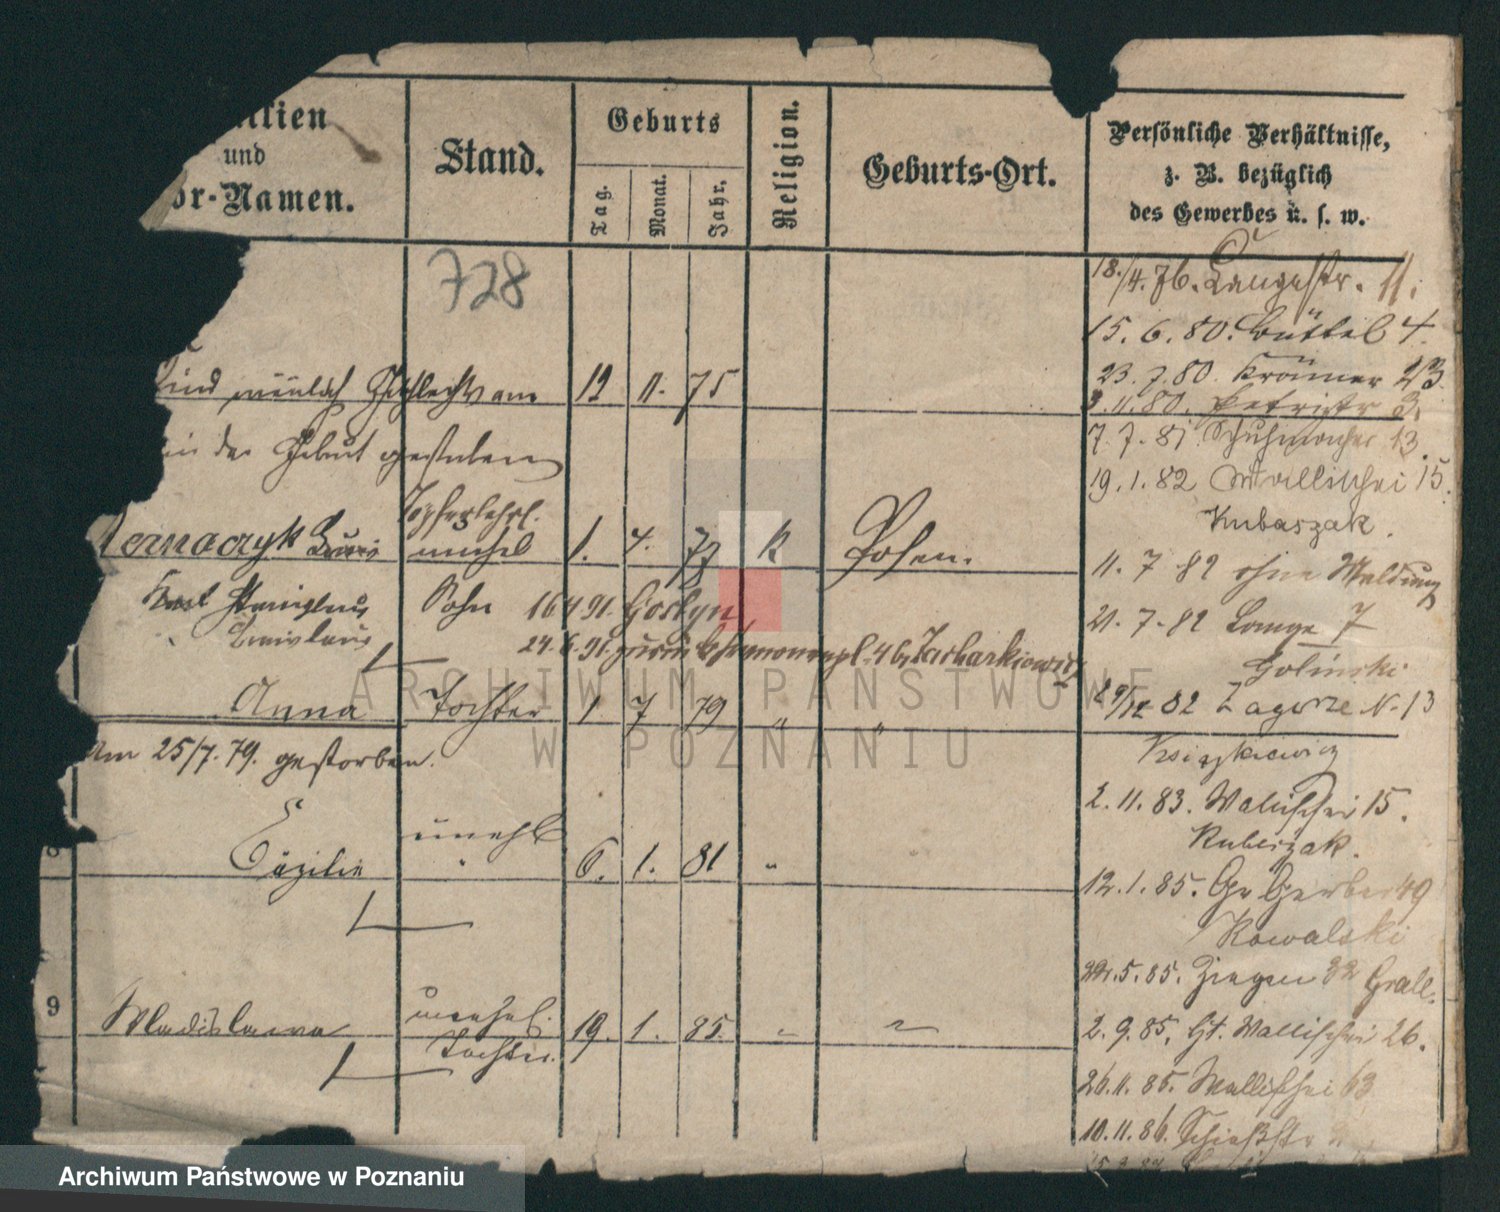 ilien
und
or-Namen.
Stand.
Geburts
Tag.
Monat.
Jahr.
Religion.
Geburts-Ort.
Persönliche Verhältnisse,
z. B. bezüglich
des Gewerbes u. s. w.
728
18./4. 76. Langestr. 11.
15. 6. 80. Büttel 4.
23. 7. 80. Krämer 23.
3. 11. 80. Petristr 3.
7. 7. 81. Schuhmacher 13.
19. 1. 82 Wallischei 15.
Kubaszak.
11. 7 82 ohne Meldung
21. 7. 82 Lange 7
Golinski
29/12 82 Zagorze N. 13
Ksiązkiewicz
2. 11. 83. Wallischei 15.
Kubiszak.
12. 1. 85. Gr Gerber 49
Kowalski
5. 85. Ziegen 32 Grall.
2. 9. 85. Wallischei 26.
26. 11. 85. Wallischei 63
10. 11. 86. Schießstr
Geschlechts am 12 11. 75
in der Geburt gestorben
unehel 1. 4. 77 k Posen.
Stanislaus Sohn 16 4 91. Gostyn
24. 6. 91. zurück 46, Zacharkiewicz
Anna Tochter 1 7 79 " "
Am 25/7. 79. gestorben.
Cäzilie unehl " 6. 1. 81 "
9 Wladislawa unehel. Tochter. 19. 1. 85. " "
ARCHIWUM PAŃSTWOWE
W POZNANIU
Archiwum Państwowe w Poznaniu